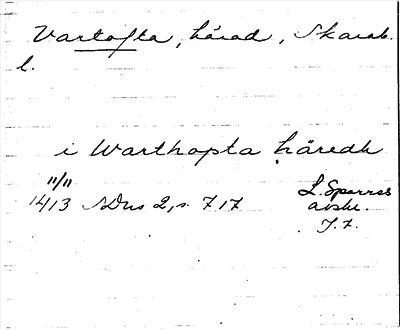 Vartofta, härad, Skarab.
l.
i Warthopta häredh
11/11
1413 SDns 2, s. 717
L. Sparres
avskr.